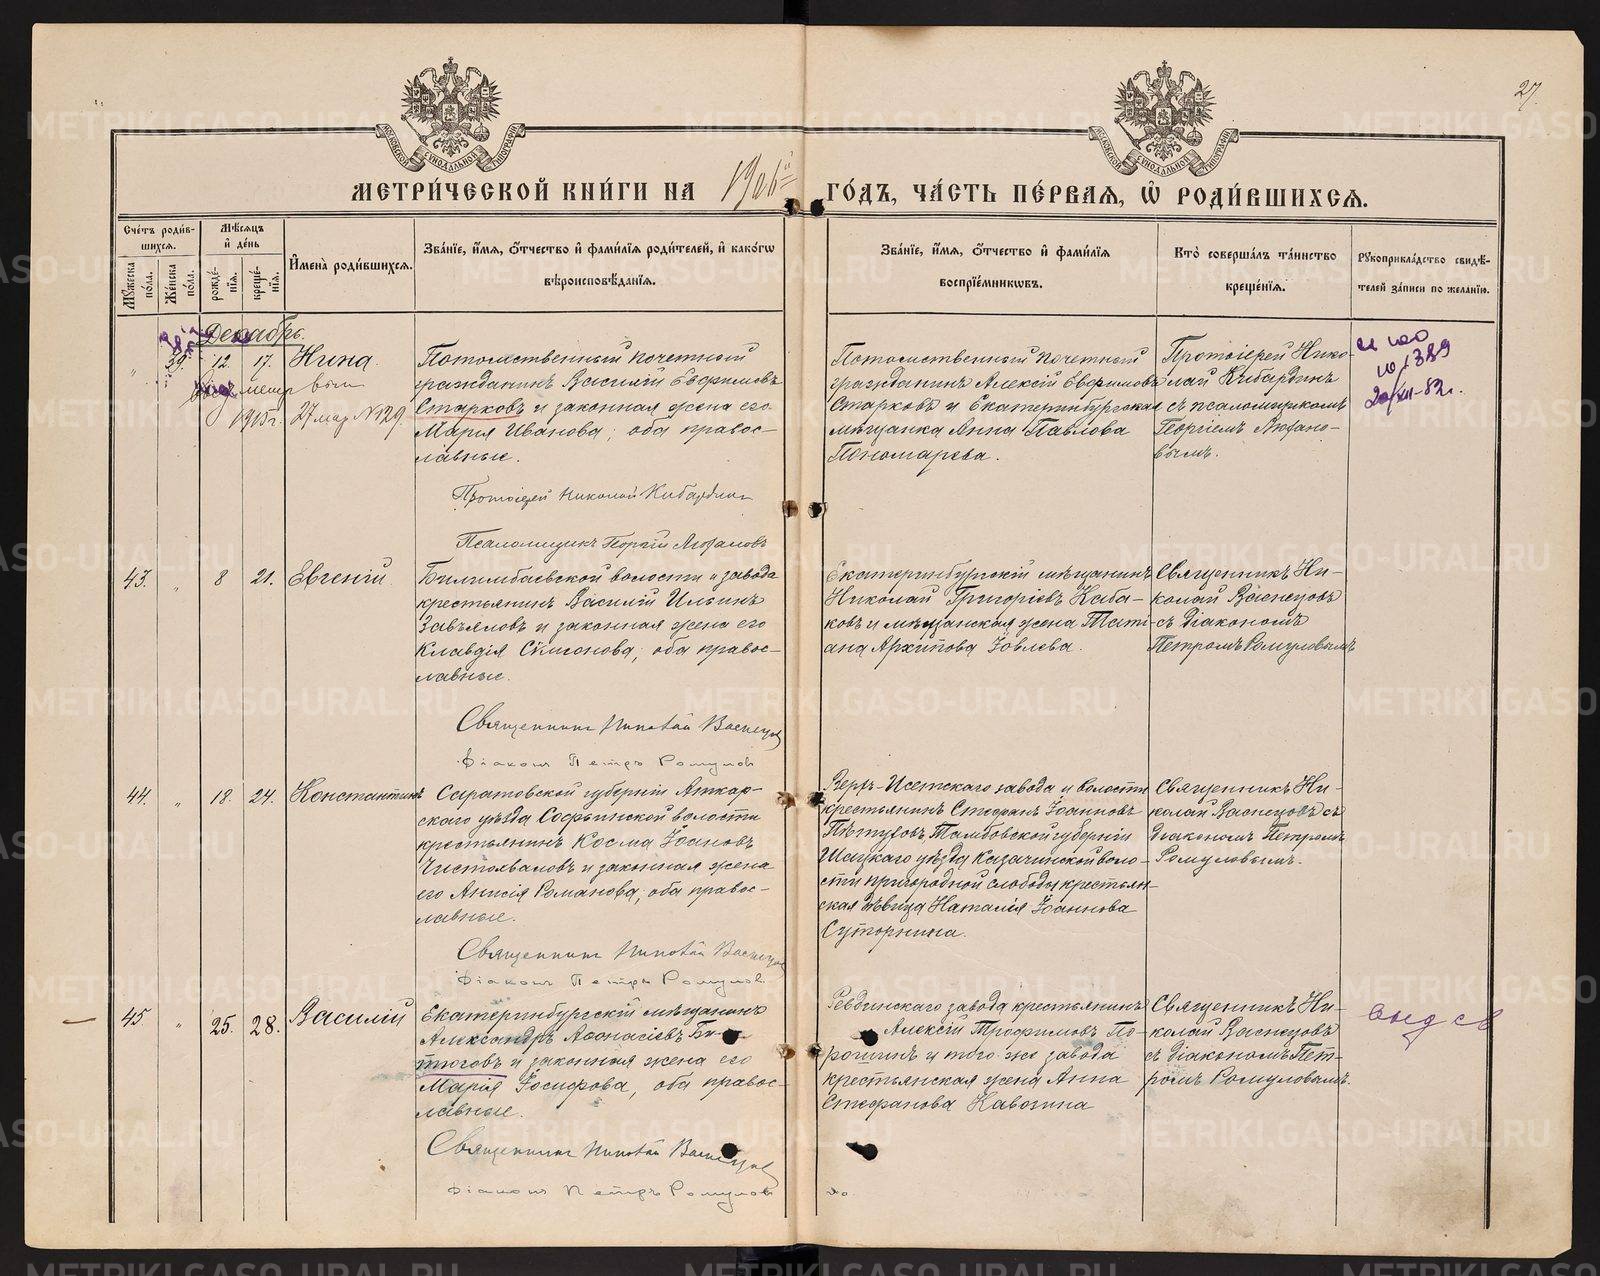 27.
МОСКОВСКОЙ СѴНОДАЛЬНОЙ ТИПОГРАФІИ
МОСКОВСКОЙ СѴНОДАЛЬНОЙ ТИПОГРАФІИ
МЕТРИ́ЧЕСКОЙ КНИ́ГИ НА 1906й ГО́ДЪ, ЧА́СТЬ ПЕ́РВАЯ, Ѡ РОДИ́ВШИХСЯ.
Сче́тъ роди́в-
шихся.
Му́жеска по́ла.
Же́нска по́ла.
Мѣ́сяцъ
и де́нь
рожде́-
нія.
креще́-
нія.
И҆мена̀ роди́вшихся.
Зва́ніе, и҆́мя, о҆́тчество и҆ фами́лія роди́телей, и҆ како́гѡ
вѣроисповѣ́данія.
Зва́ніе, и҆́мя, о҆́тчество и҆ фами́лія
воспріе́мниковъ.
Кто̀ соверша́лъ та́инство
креще́нія.
Рукоприкла́дство свидѣ́-
телей за́писи по жела́нію.
Декабрь.
" 39. 12. 17. Нина
1915 г. 27 мар № 129.
Потомственный почетный
гражданинъ Василій Евфимовъ
Старковъ и законная жена его
Марія Иванова; оба правос-
лавные.
Протоіерей Николай Кибардин
Псаломщикъ Георгій Люхановъ
Потомственный почетный
гражданинъ Алексій Евфимовъ
Старковъ и Екатеринбургская
мѣщанка Анна Павлова
Пономарева.
Протоіерей Нико-
лай Кибардинъ
съ псаломщикомъ
Георгіемъ Люхано-
вымъ.
20/XII-82г.
43. " 8 21. Евгеній
Билимбаевской волости и завода
крестьянинъ Василій Ильинъ
Завьяловъ и законная жена его
Клавдія Сѵмеонова; оба правос-
лавные.
Священникъ Николай Васнецов
Діаконъ Петръ Ромулов
Екатеринбургскій мѣщанинъ
Николай Григоріевъ Каба-
ковъ и мѣщанская жена Тати-
ана Архипова Іовлева.
Священникъ Ни-
колай Васнецовъ
съ діакономъ
Петромъ Ромуловымъ
44. " 18. 24. Константинъ
Саратовской губерніи Аткар-
скаго уѣзда Софьинской волости
крестьянинъ Косма Іоановъ
Чистохваловъ и законная жена
его Анисія Романова; оба правос-
лавные.
Священникъ Николай Васнецов
Діаконъ Петръ Ромулов
Верхъ-Исетскаго завода и волости
крестьянинъ Стефанъ Іоанновъ
Пѣтуховъ, Тамбовской губерніи
Шацкаго уѣзда Казачинской воло-
сти пригородной слободы крестьян-
ская дѣвица Наталія Іоаннова
Суторнина.
Священникъ Ни-
колай Васнецовъ съ
діакономъ Петромъ
Ромуловымъ.
45. " 25. 28. Василій
Екатеринбургскій мѣщанинъ
Александръ Аѳонасіевъ Би-
тюговъ и законная жена его
Марія Іосифова, оба правос-
лавные.
Священникъ Николай Васнецов
Діаконъ Петръ Ромулов
Ревдинскаго завода крестьянинъ
Алексій Трофимовъ По-
рошинъ и того же завода
крестьянская жена Анна
Стефанова Кавозина
Священникъ Ни-
колай Васнецовъ
съ діакономъ Пет-
ромъ Ромуловымъ.
выд св
METRIKI.GASO-URAL.RU